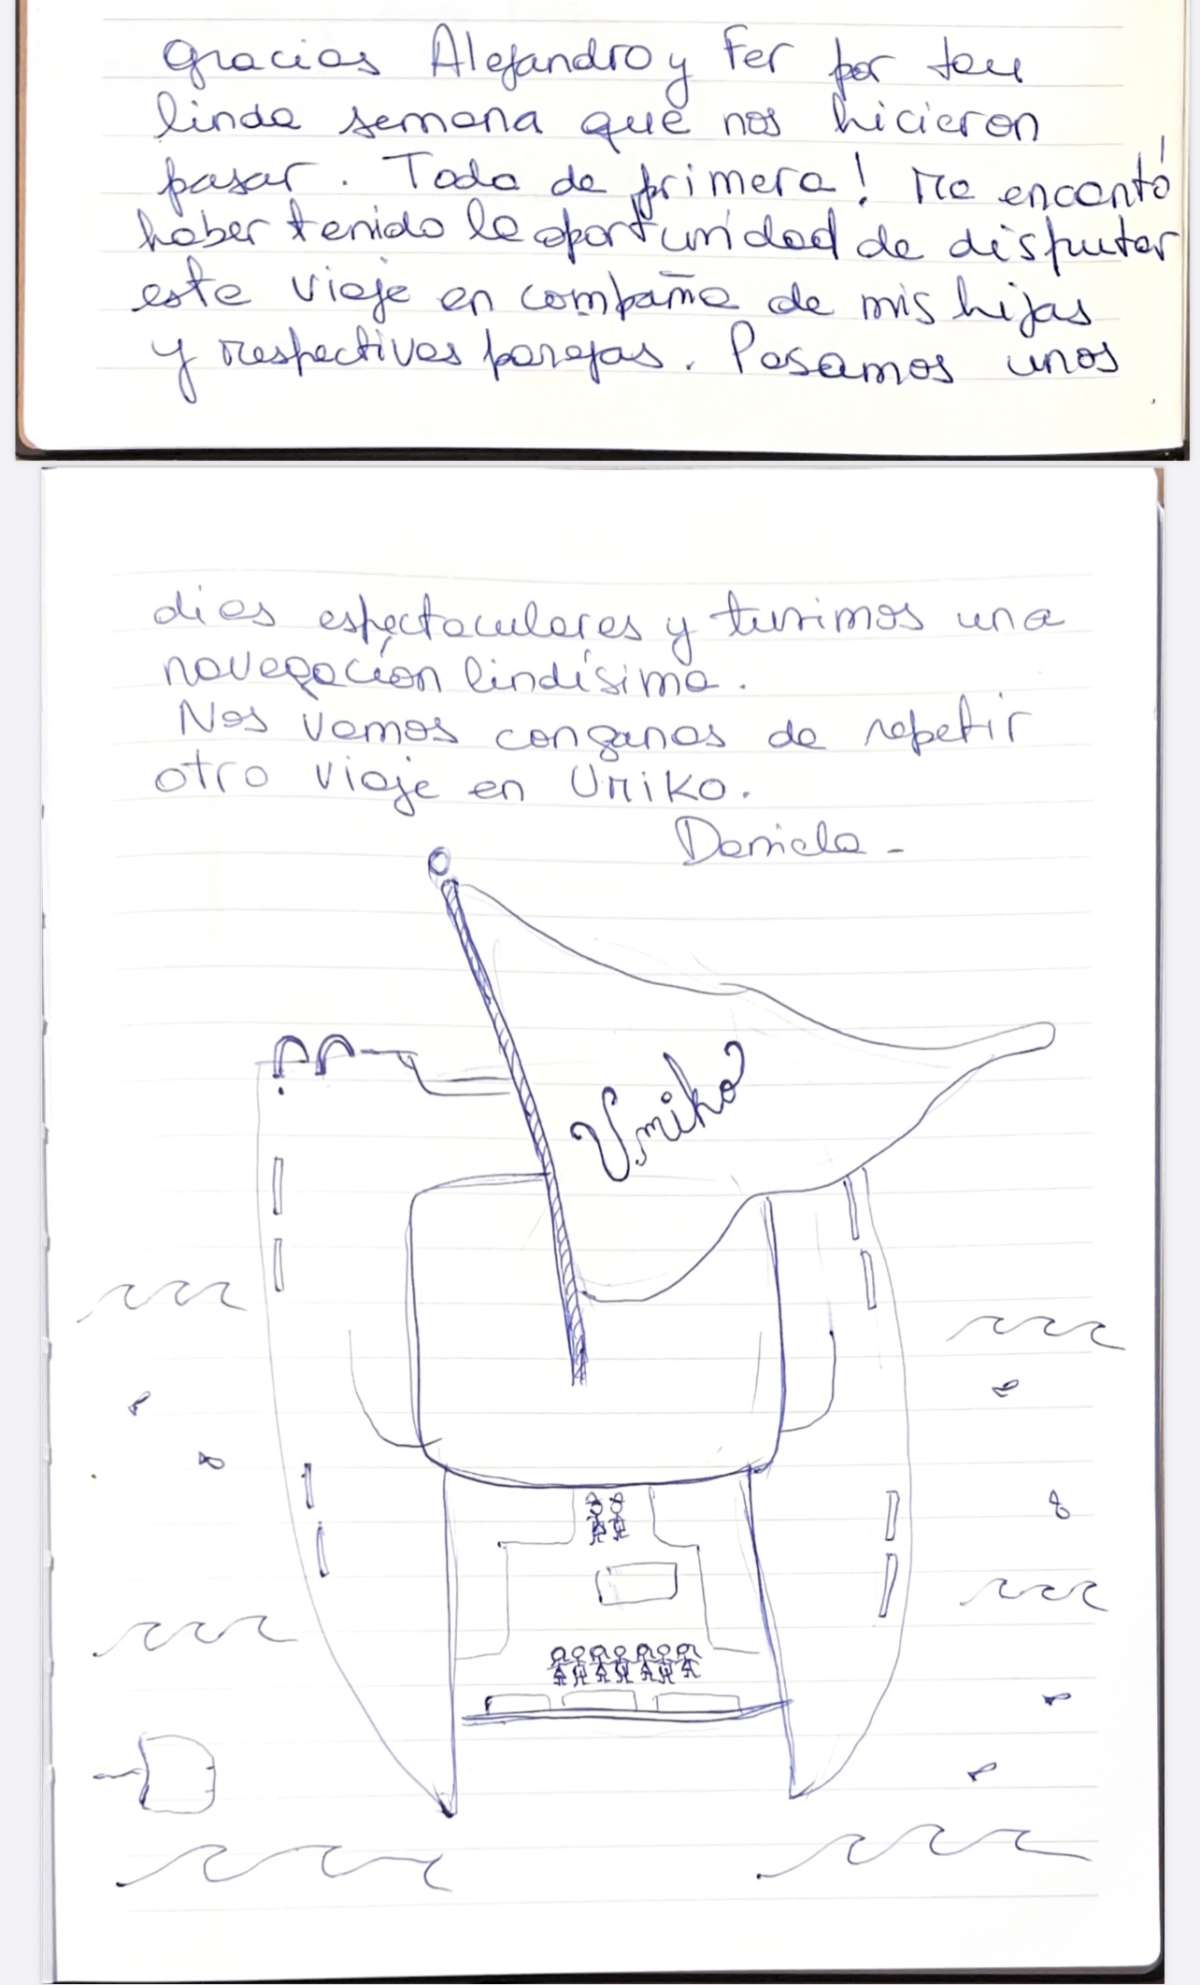 Gracias Alejandro y Fer por tan
linda semana que nos hicieron
pasar. Todo de primera! Me encantó
haber tenido la oportunidad de disfrutar
este viaje en compañia de mis hijas
y respectivas parejas. Pasamos unos
dias espectaculares y tuvimos una
navegación lindísima.
Nos vamos con ganas de repetir
otro viaje en Umiko.
Daniela -
Umiko